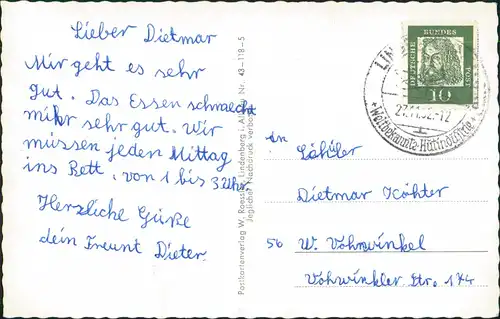 Lieber Dietmar
Mir geht es sehr
gut. Das Essen schmeckt
mihr sehr gut. Wir
müssen jeden Mittag
ins Bett, von 1 bis 3 Uhr.
Herzliche Güße
dein Freunt Dieter.
Postkartenverlag W. Roessler, Lindenberg i. Allgäu Nr. 43-118-5
Jeglicher Nachdruck verboten
DEUTSCHE
BUNDES
POST
10
LIN
27.11.62.-12
Weltbekannte Hutindustrie
An
Schüler
Dietmar Köhter
56 W. Vohwinkel
Vohwinkler Str. 174